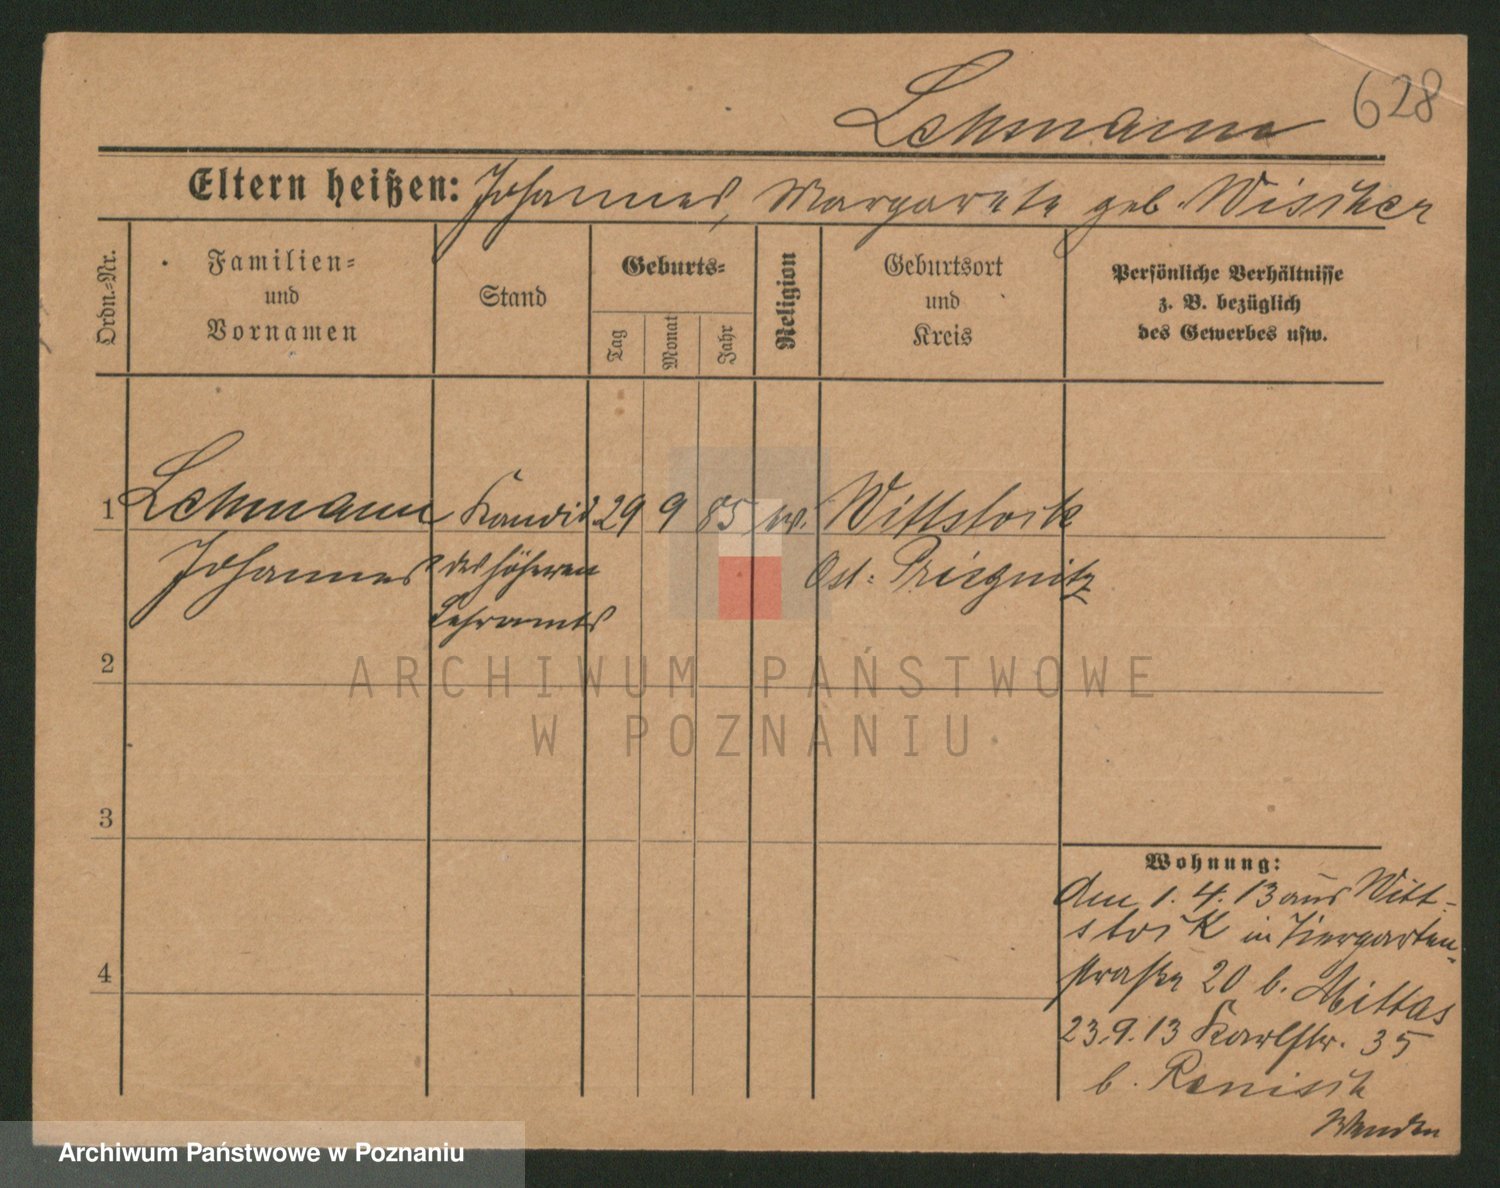 Lehmann 628
Eltern heißen: Johannes, Margarete geb. Wischer
Ordn.-Nr.
Familien-
und
Vornamen
Stand
Geburts-
Tag
Monat
Jahr
Religion
Geburtsort
und
Kreis
Persönliche Verhältnisse
z. B. bezüglich
des Gewerbes usw.
1 Lehmann Kandid. 29 9 85 ev. Wittstock
Johannes des höheren Ost-Priegnitz
Lehramts
2
3
4
Wohnung:
Am 1.4.13 aus Witt-
stock in Tiergarten-
straße 20 b. Mittas
23.9.13 Karlstr. 35
b.
ARCHIWUM PAŃSTWOWE
W POZNANIU
Archiwum Państwowe w Poznaniu